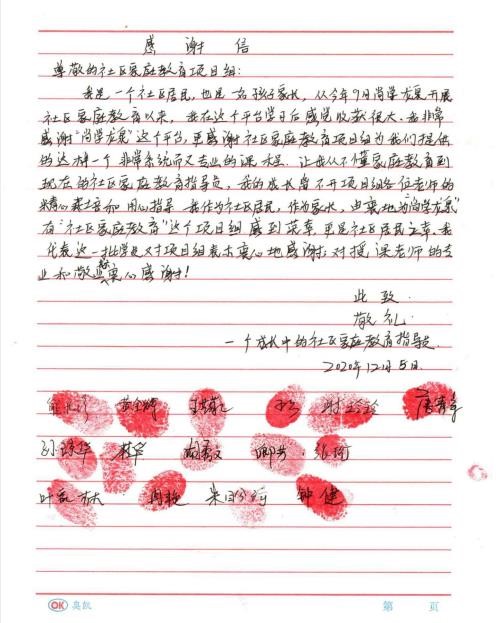 感谢信
尊敬的社区家庭教育项目组:
我是一个社区居民,也是一名孩子家长,从今年9月尚学龙泉开展
社区家庭教育以来,我在这个平台学习后感觉收获很大,我非常
感谢"尚学龙泉"这个平台,更感谢社区家庭教育项目组为我们提供
的这样一个非常系统而又专业的课程,让我从不懂家庭教育到
现在的社区家庭教育指导员,我的成长离不开项目组各位老师的
精心栽培和用心指导,我作为社区居民,作为家长,由衷地为"尚学龙泉"
有"社区家庭教育"这个项目组感到荣幸,更是社区居民之幸,我
代表这一批学员对项目组表示衷心地感谢;对授课老师的专
业和敬业衷心感谢!
此致
敬礼
一个成长中的社区家庭教育指导员
2020年12月5日
谢玲玲
孙琼华 林华 张琦
叶 钟健
OK 奥凯 第 页